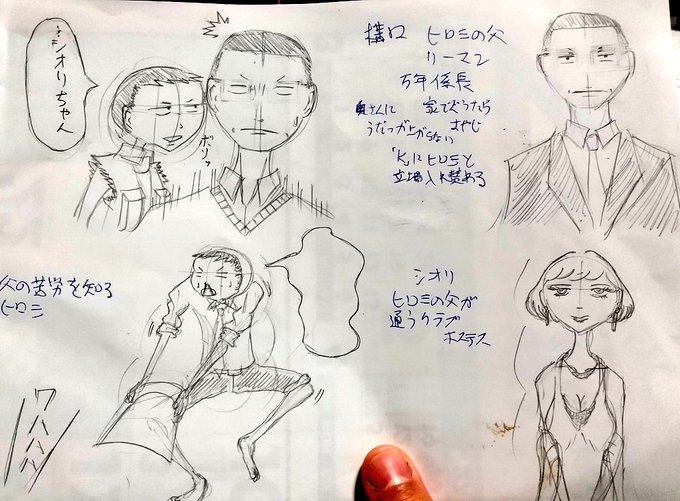 …シオリちゃん
ボソッ
ヒロミの父
リーマン
万年係長
家でぐうたら
うだつが上がらない おやじ
「K」にヒロミと
立場入れ替わる
父の苦労を知る
ヒロミ
ワハハハ
シオリ
ヒロミの父が
通うクラブ
ホステス